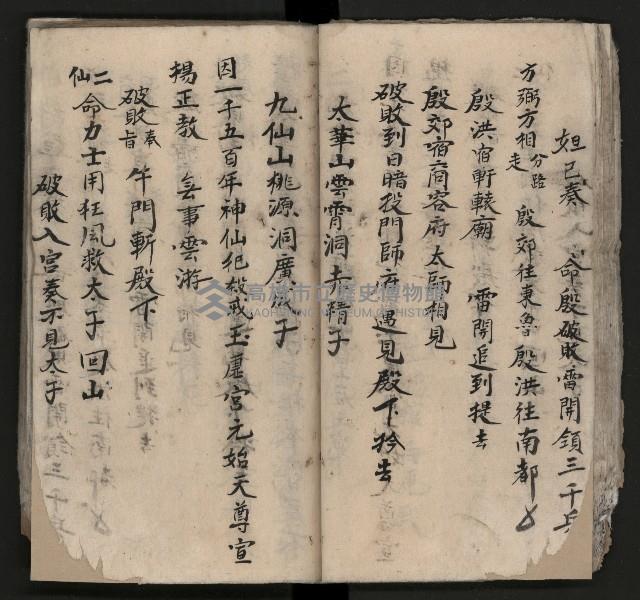 妲己奏　命殷破敗雷開領三千兵
方弼方相分路走　殷郊往東魯殷洪往南都
殷洪宿軒轅廟　雷開追到提去
殷郊宿商容府太師相見
破敗到日暗投門師府遇見殿下拎去
太華山雲霄洞赤精子
九仙山桃源洞廣成子
因一千五百年神仙犯殺戒玉虛宮元始天尊宣
揚正教　無事雲游
破敗奉旨午門斬殿下
二仙命力士用狂風救太子回山
破敗入宮奏不見太子
高雄市立歷史博物館
KAOHSIUNG MUSEUM OF HISTORY